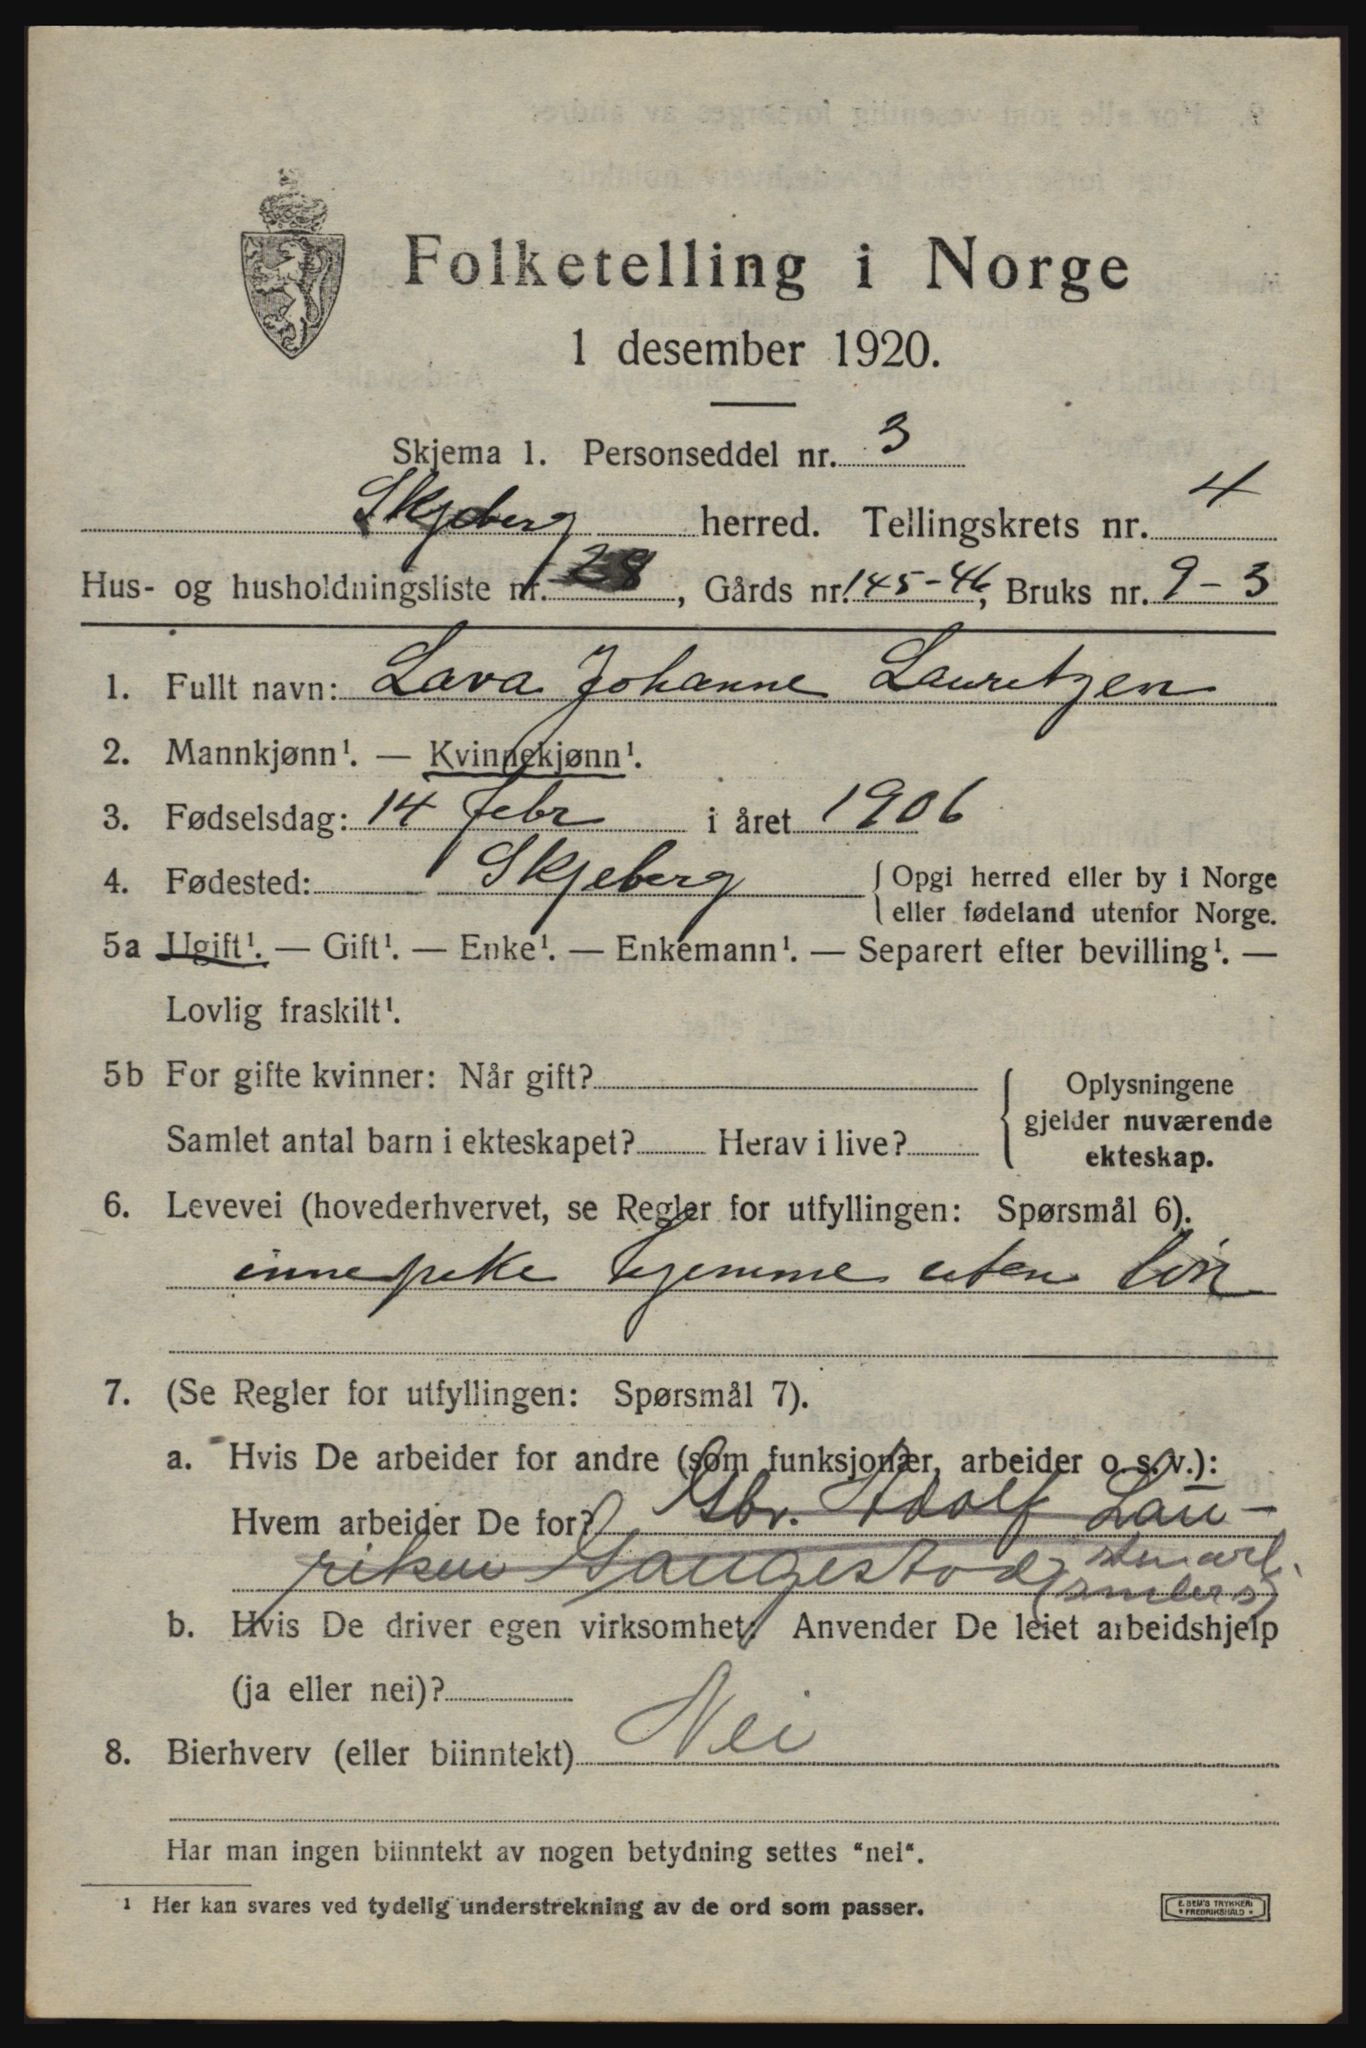 Folketelling i Norge
1 desember 1920.
Skjema 1. Personseddel nr. 3
Skjeberg herred. Tellingskrets nr. 4
Hus- og husholdningsliste nr. 28, Gårds nr. 145-46, Bruks nr. 9-3
1. Fullt navn: Lava Johanne Lauritzen
2. Mannkjønn¹. — Kvinnekjønn¹.
3. Fødselsdag: 14 febr i året 1906
4. Fødested: Skjeberg {Opgi herred eller by i Norge
eller fødeland utenfor Norge.
5a Ugift¹. — Gift¹. — Enke¹. — Enkemann¹. — Separert efter bevilling¹. —
Lovlig fraskilt¹.
5b For gifte kvinner: Når gift? { Oplysningene
gjelder nuværende
Samlet antal barn i ekteskapet? Herav i live?
ekteskap.
6. Levevei (hovederhvervet, se Regler for utfyllingen: Spørsmål 6).
innepike hjemme uten løn
7. (Se Regler for utfyllingen: Spørsmål 7).
a. Hvis De arbeider for andre (som funksjonær, arbeider o. s. v.):
Hvem arbeider De for? Gbr. Adolf Lau-
b. Hvis De driver egen virksomhet: Anvender De leiet arbeidshjelp
(ja eller nei)?
8. Bierhverv (eller biinntekt) Nei
Har man ingen biinntekt av nogen betydning settes "nei".
¹ Her kan svares ved tydelig understrekning av de ord som passer.
E. SEM'S TRYKKERI
FREDRIKSHALD